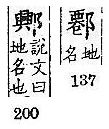 地名
137
說文曰
地名也
200